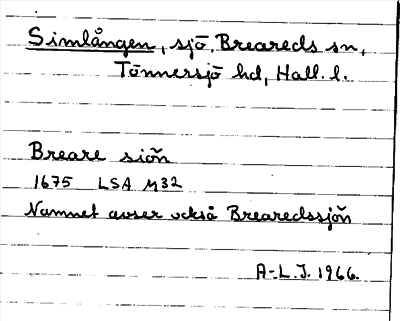 Simlången, sjö, Breareds sn,
Tönnersjö hd, Hall. l.
Breare siön
1675 LSA M32
Namnet avser också Brearedssjön
A-L.J. 1966.